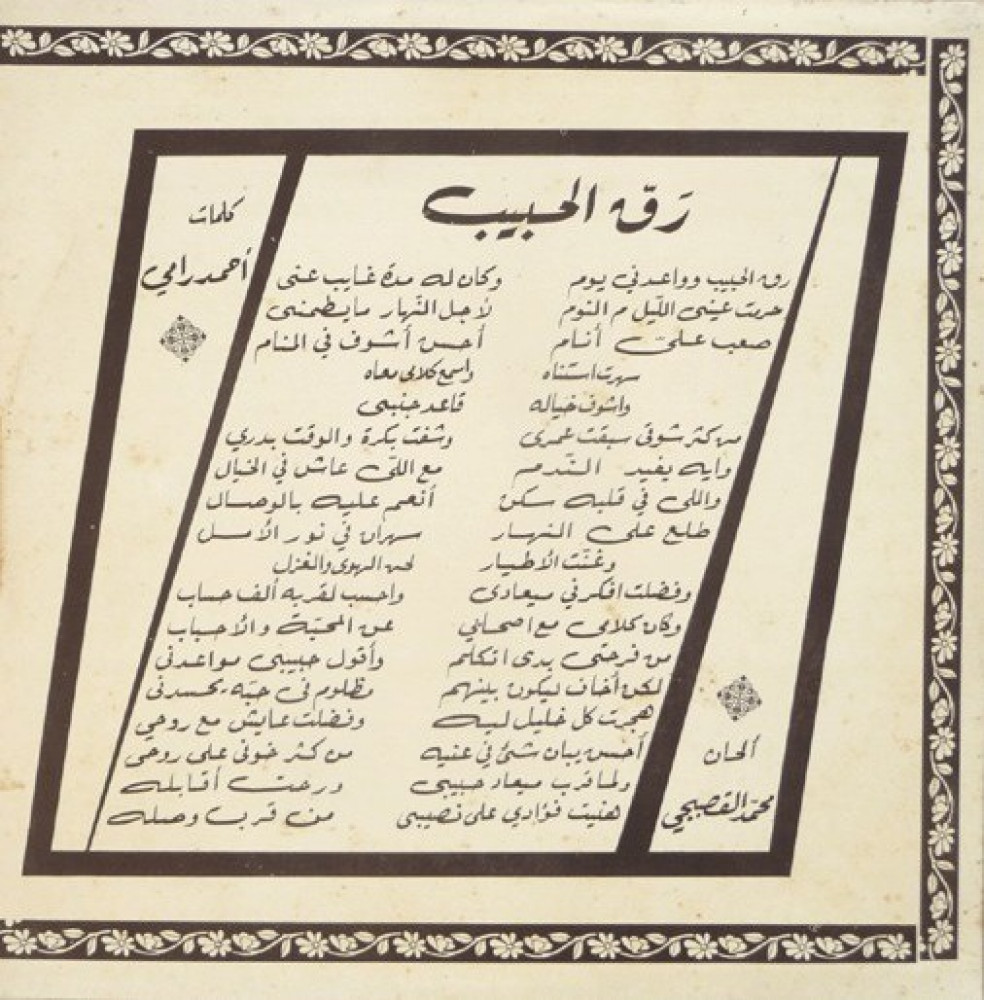 رَقّ الحبيب
كلمات
أحمد رامي
رق الحبيب وواعدني يوم وكان له مدة غايب عنى
حرمت عينى الليل م النوم لاجل النهار ما يطمنى
صعب علىّ أنام أحسن أشوف في المنام
سهرت استناه واسمع كلامى معاه
واشوف خياله قاعد جنبى
من كثر شوقى سبقت عمرى وشفت بكرة والوقت بدري
وايه يفيد الندم مع اللى عاش في الخيال
واللى في قلبه سكن أنعم عليه بالوصال
طلع على النهار سهران في نور الأمل
وغنت الأطيار لحن الهوى والغزل
وفضلت افكر في ميعادى واحسب لقربه ألف حساب
وكان كلامى مع اصحابي عن المحبّة والأحباب
من فرحتى بدى اتكلم وأقول حبيبى مواعدنى
لكن أخاف ليكون بينهم مظلوم في حبّه يحسدنى
هجرت كل خليل ليه وفضلت عايش مع روحي
أحسن يبان شئ في عنيه من كثر خوفى على روحى
ولما قرب ميعاد حبيبى ورحت أقابله
هنيت فؤادي على نصيبى من قرب وصله
ألحان
محمّد القصبجي